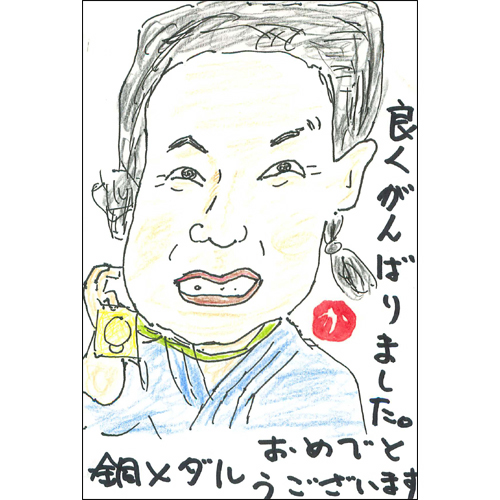 良くがんばりました。
銅メダル
おめでと
うございます
か